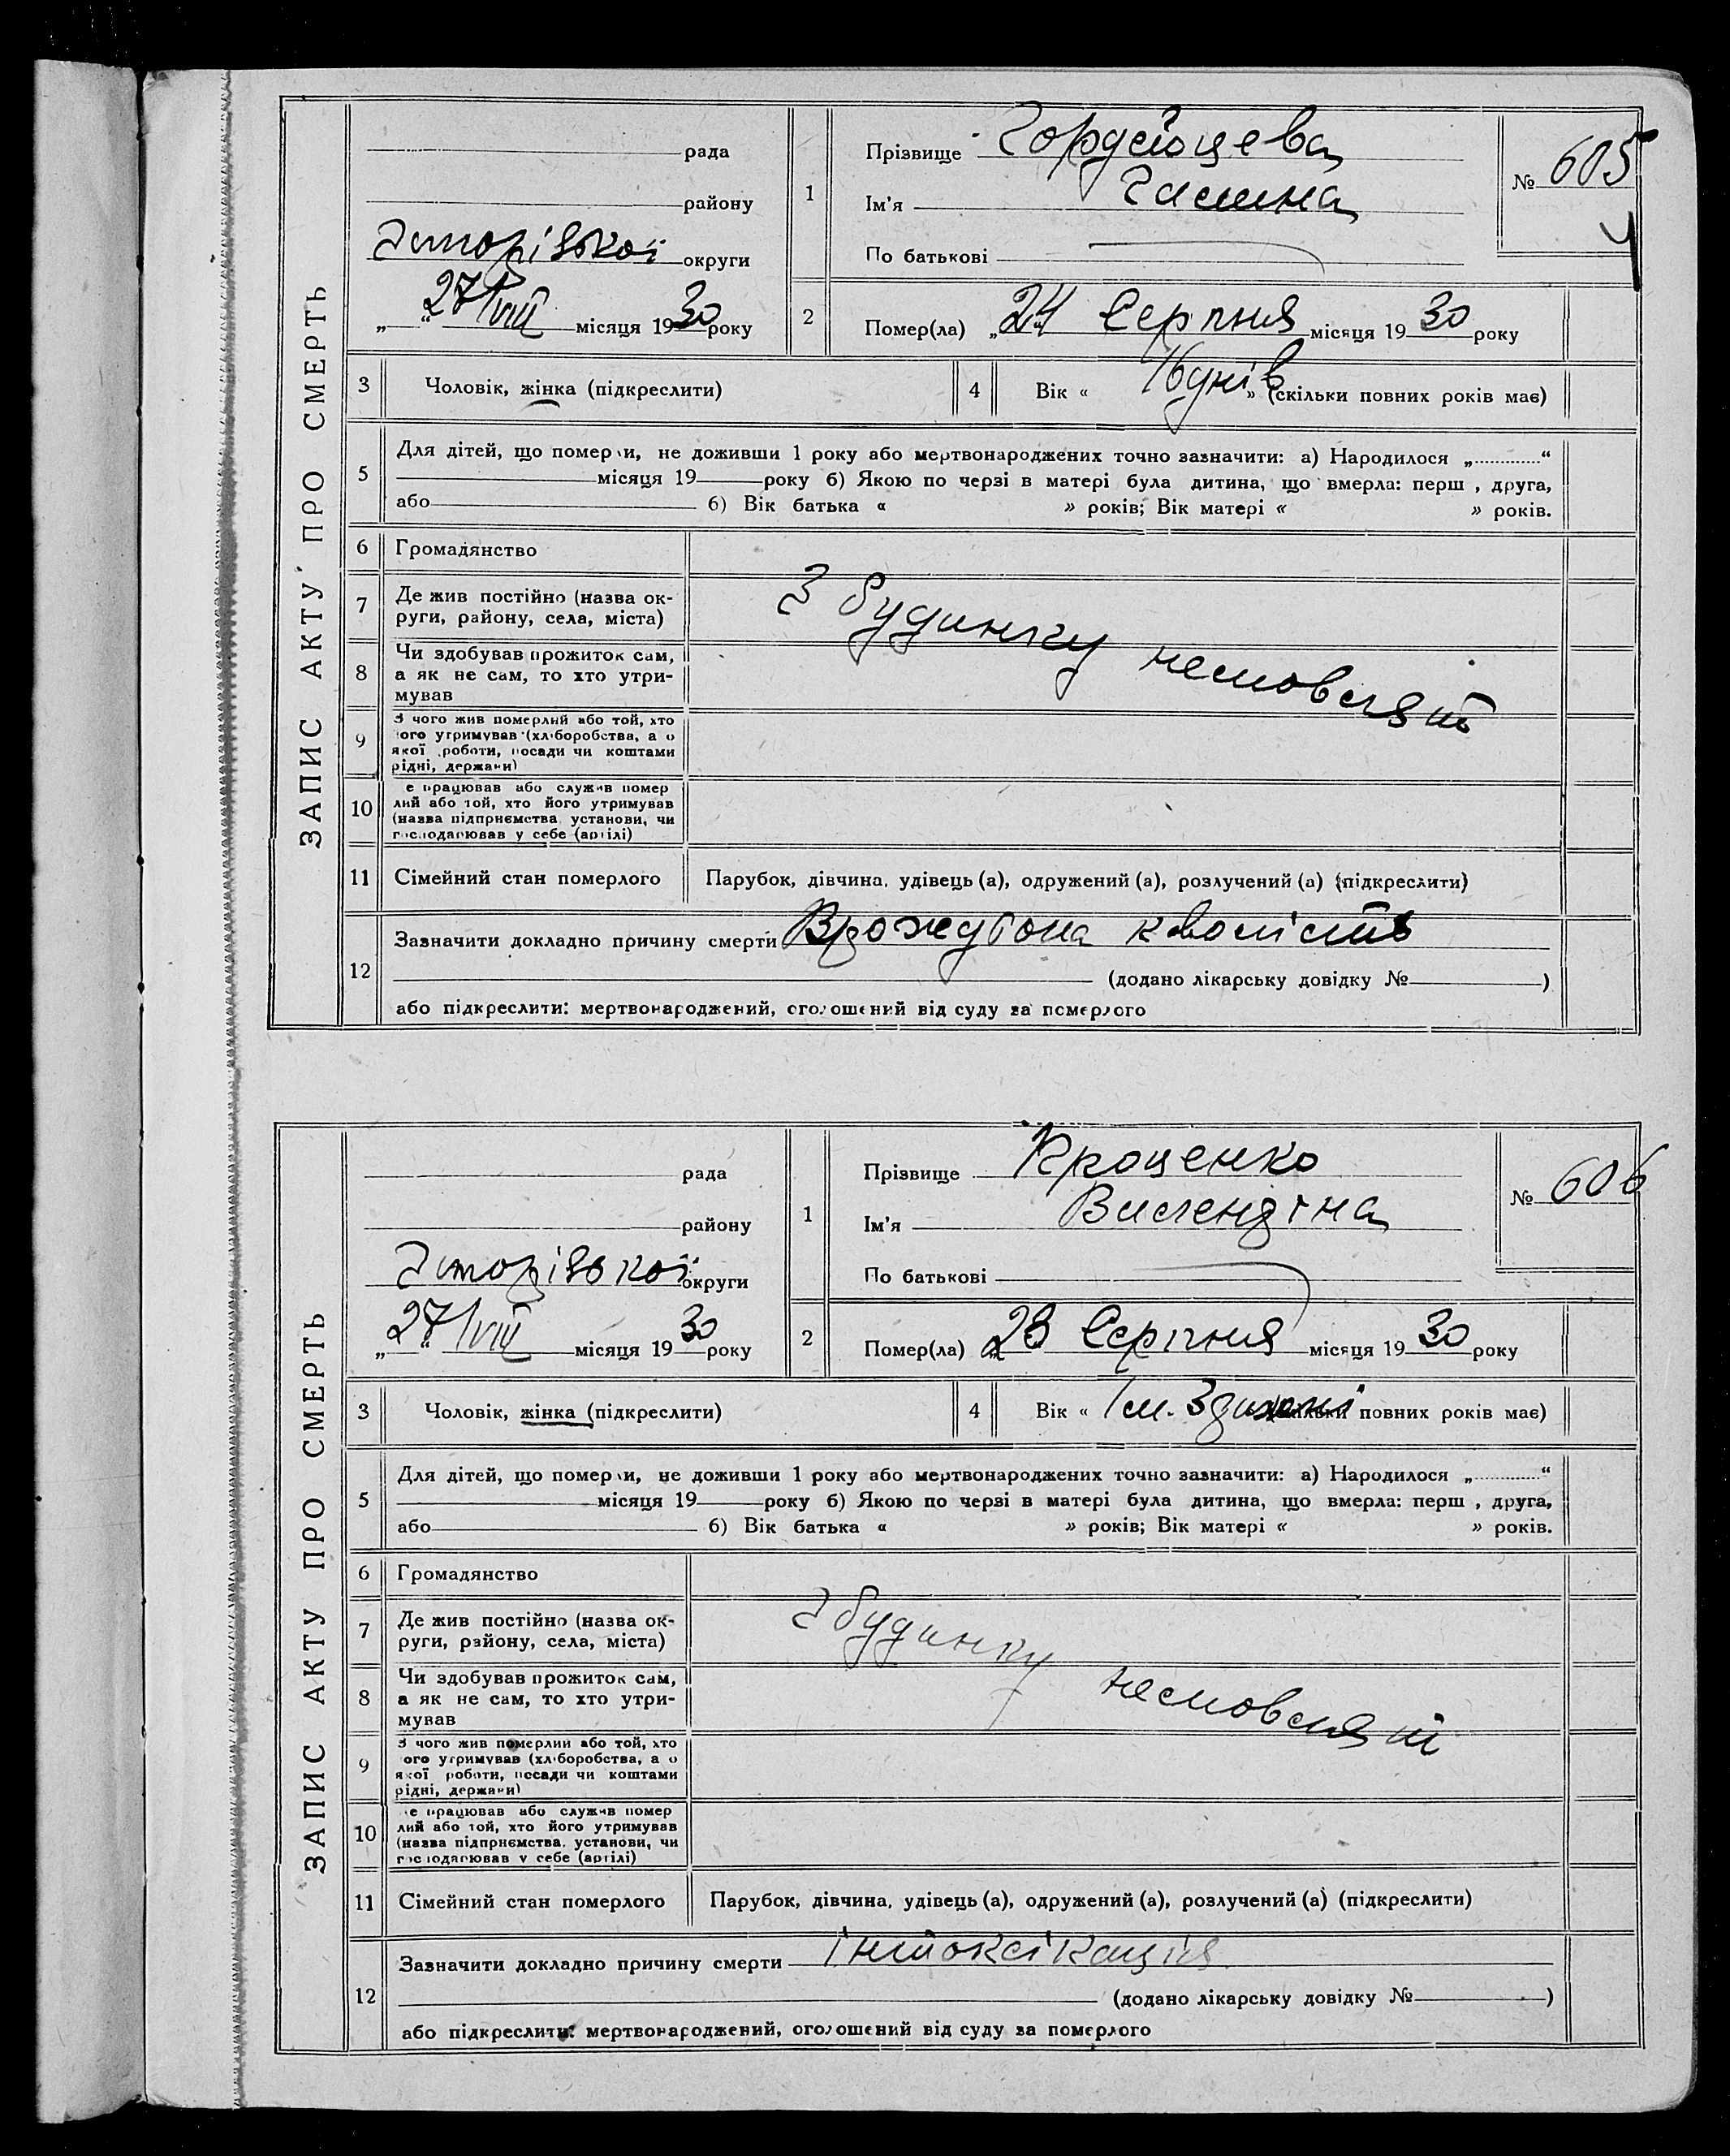 ЗАПИС АКТУ ПРО СМЕРТЬ
рада
району
округи
27/VIII місяця 1930 року
1
Прізвище
Ім'я Галина
По батькові
№ 605
2
Помер(ла) „24 Серпня місяця 1930 року
3 Чоловік, жінка (підкреслити)
4 Вік « 16 днів » (скільки повних років має)
5 Для дітей, що померли, не доживши 1 року або мертвонароджених точно зазначити: а) Народилося „ “
місяця 19 року б) Якою по черзі в матері була дитина, що вмерла: перш , друга,
або б) Вік батька « » років; Вік матері « » років.
6 Громадянство
7 Де жив постійно (назва ок-
руги, району, села, міста)
З будинку немовлят
8 Чи здобував прожиток сам,
а як не сам, то хто утри-
мував
9 З чого жив померлий або той, хто
ого утримував (хліборобства, а о
якої роботи, посади чи коштами
рідні, держави)
10 е працював або служив помер
лий або той, хто його утримував
(назва підприємства, установи, чи
господарював у себе (артілі)
11 Сімейний стан померлого Парубок, дівчина, удівець (а), одружений (а), розлучений (а) (підкреслити)
12 Зазначити докладно причину смерти Врождьона кволість
(додано лікарську довідку № )
або підкреслити: мертвонароджений, оголошений від суду за померлого
ЗАПИС АКТУ ПРО СМЕРТЬ
рада
району
округи
27/VIII місяця 1930 року
1
Прізвище Кроценко
Ім'я
По батькові
№ 606
2
Помер(ла) „23 Серпня місяця 1930 року
3 Чоловік, жінка (підкреслити)
4 Вік « 1 м. 3 дині повних років має)
5 Для дітей, що померли, не доживши 1 року або мертвонароджених точно зазначити: а) Народилося „ “
місяця 19 року б) Якою по черзі в матері була дитина, що вмерла: перш , друга,
або б) Вік батька « » років; Вік матері « » років.
6 Громадянство
7 Де жив постійно (назва ок-
руги, району, села, міста)
З будинку немовлят
8 Чи здобував прожиток сам,
а як не сам, то хто утри-
мував
9 З чого жив померлий або той, хто
ого утримував (хліборобства, а о
якої роботи, посади чи коштами
рідні, держави)
10 е працював або служив помер
лий або той, хто його утримував
(назва підприємства, установи, чи
господарював у себе (артілі)
11 Сімейний стан померлого Парубок, дівчина, удівець (а), одружений (а), розлучений (а) (підкреслити)
12 Зазначити докладно причину смерти Інтоксікація
(додано лікарську довідку № )
або підкреслити: мертвонароджений, оголошений від суду за померлого